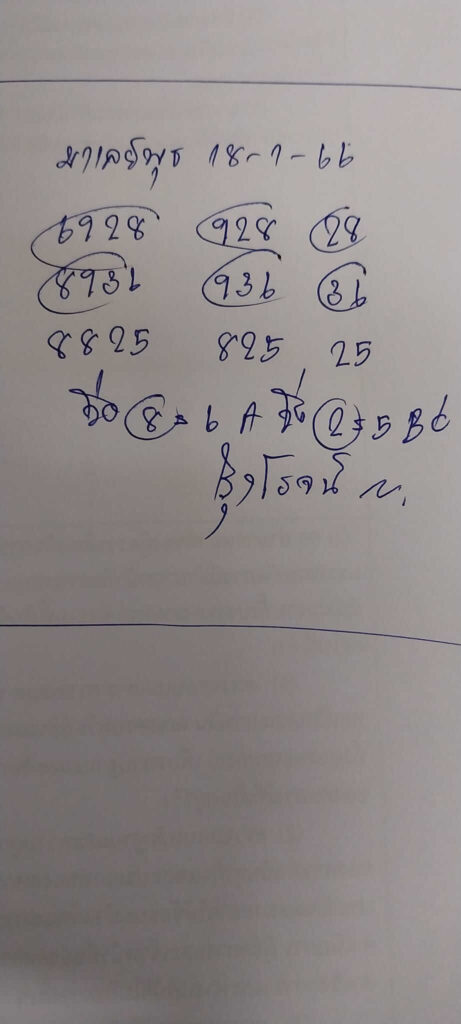 มาเลย์พุธ 18-1-66
6928 928 28
8936 936 36
8825 825 25
8 = 6 A 2 = 5 BC